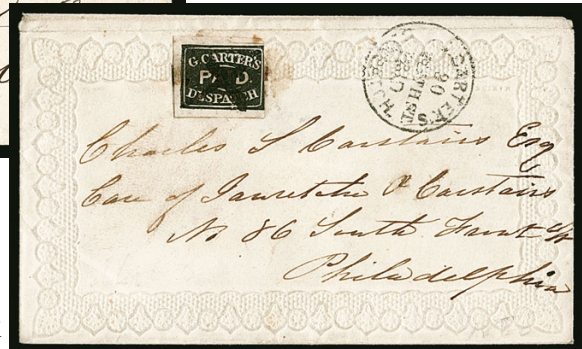 G. CARTER'S
PAID
DISPATCH
H.J. CARTER'S
20
Charles S Carstairs Esq
Care of Jauretche & Carstairs
No 86 South Front St
Philadelphia